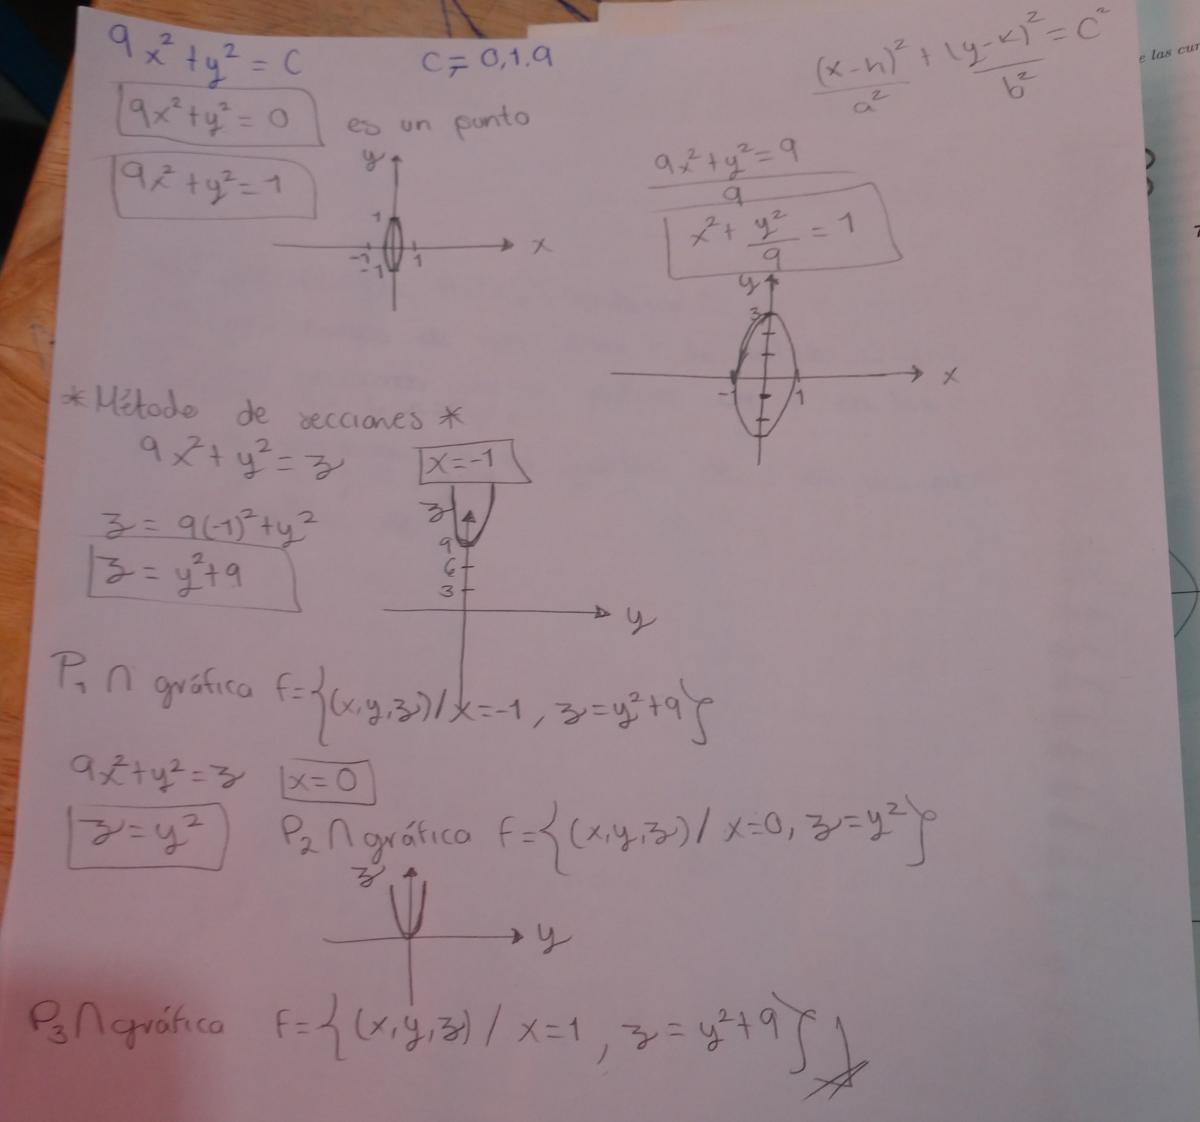 9x²+y² = C    C = 0,1,9
(x-h)²/a² + (y-k)²/b² = C²
9x²+y² = 0   es un punto
9x²+y² = 1
y
1
-1   1   x
-1
9x²+y²=9
9
x² + y²/9 = 1
y
3
-1   1   x
*Método de secciones*
9x²+y² = z   x=-1
z = 9(-1)²+y²
z = y²+9
z
9
6
3
y
P₁ ∩ gráfica f={(x,y,z)/x=-1, z=y²+9}
9x²+y²=z   x=0
z=y²   P₂ ∩ gráfica f={(x,y,z)/ x=0, z=y²}
z
y
P₃ ∩ gráfica f={(x,y,z) / x=1, z = y²+9}
e las cur